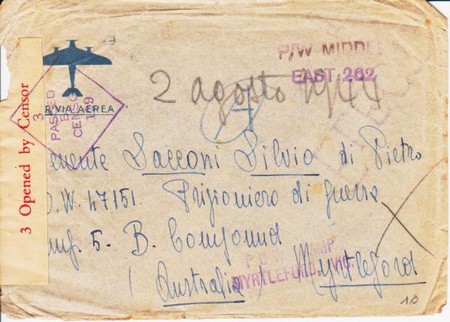 P/W MIDDLE
EAST 262
2 agosto 1944
R VIA AEREA
3
PASSED
BY
CENSOR
3 Opened by Censor
Sacconi Silvio di Pietro
P.O.W. 47151. Prigioniero di guerra
5. B. Compound
CAMP
MYRTLEFORD VIC
(Australia) Myrtleford
10